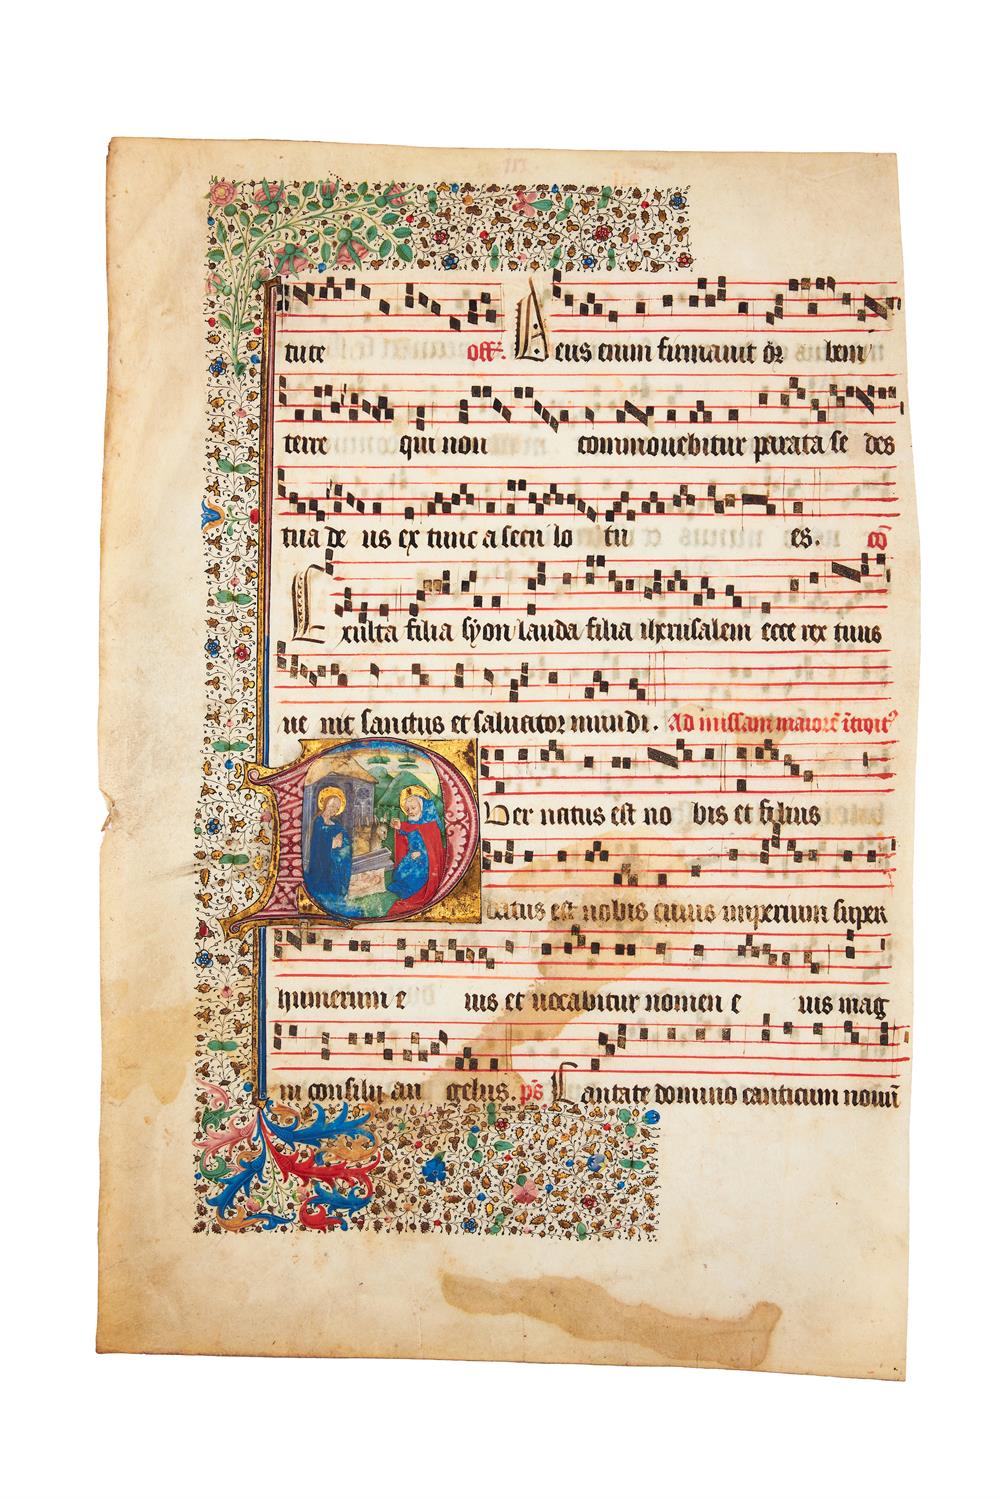 tute off. Deus enim firmauit or bem
terre qui non commouebitur parata se des
tua de us ex tunc a seculo tu es. cō
Exulta filia syon lauda filia iherusalem ecce rex tuus
ue nit sanctus et saluator mundi. Ad missam maiorē
Puer natus est no bis et filius
datus est nobis cuius imperium super
humerum e ius et uocabitur nomen e ius mag
ni consilij an gelus. ps̄ Cantate domino canticum nouū